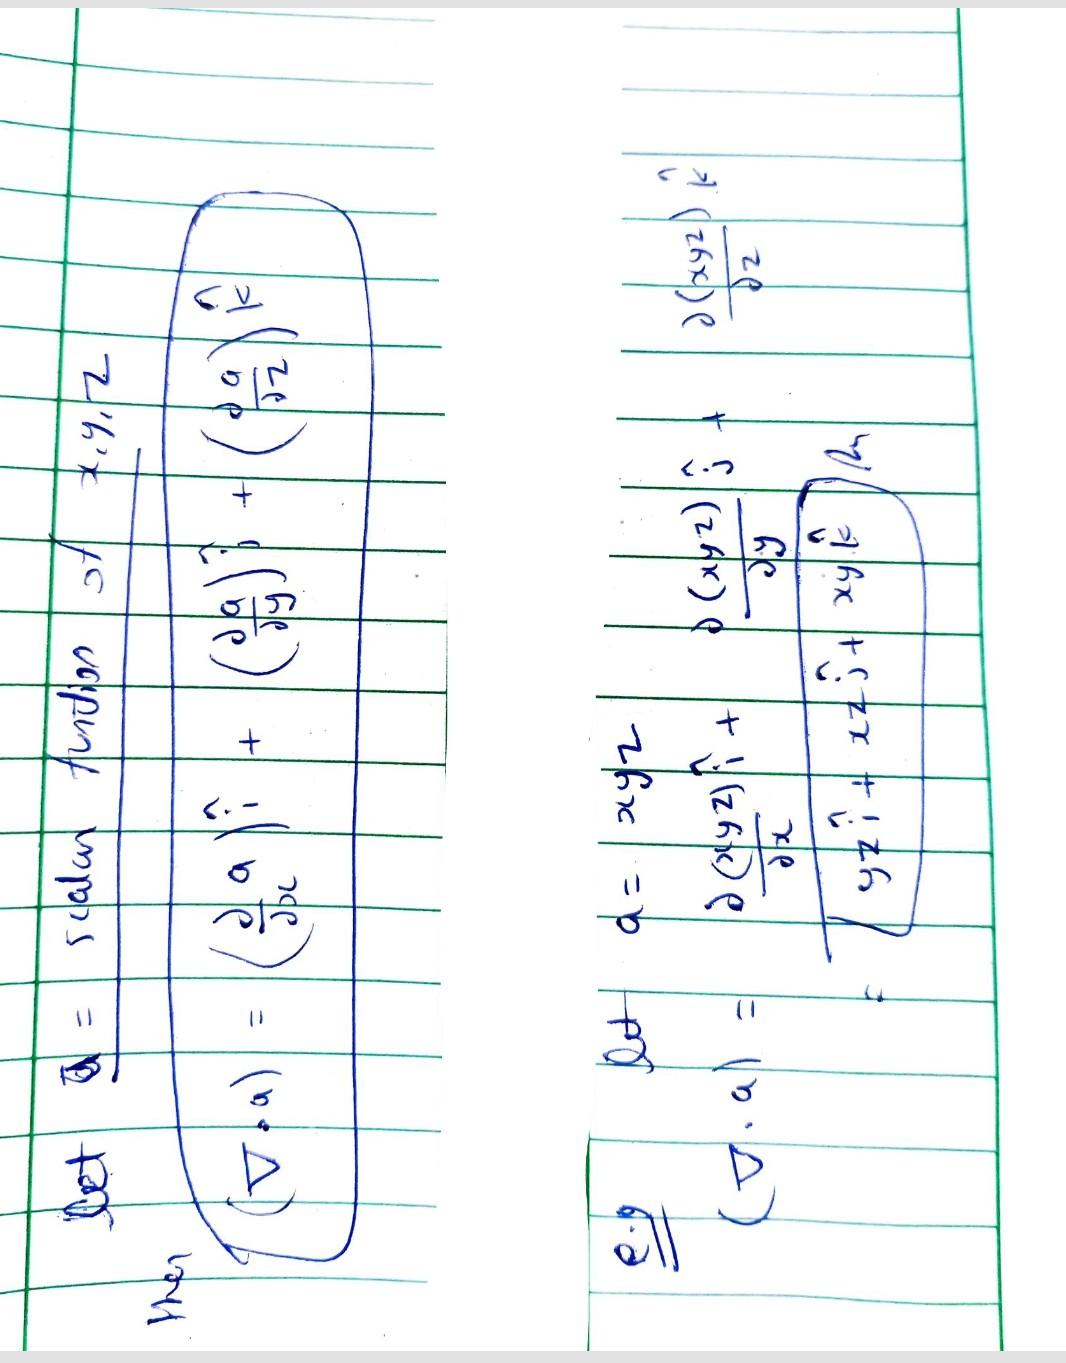 let a = scalar function of x,y,z
then
(∇·a) = (∂a/∂x) î + (∂a/∂y) ĵ + (∂a/∂z) k̂
e.g let a = xyz
(∇·a) = ∂(xyz)/∂x î + ∂(xyz)/∂y ĵ + ∂(xyz)/∂z k̂
= yz î + xz ĵ + xy k̂